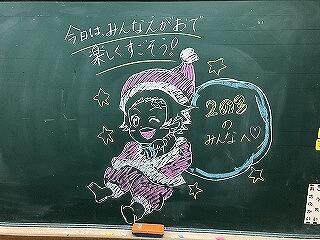 今日は、みんなえがおで
楽しくすごそう!
2の3
の
みんなへ♡